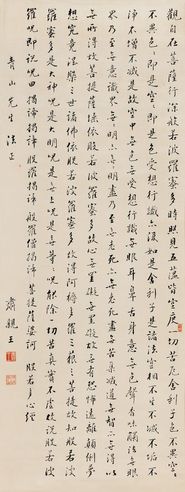 觀自在菩薩行深般若波羅蜜多時照見五蘊皆空度一切苦厄舍利子色不異空空
不異色色即是空空即是色受想行識亦復如是舍利子是諸法空相不生不滅不垢不
淨不增不減是故空中無色無受想行識無眼耳鼻舌身意無色聲香味觸法無眼
界乃至無意識界無無明亦無無明盡乃至無老死亦無老死盡無苦集滅道無智亦無得以
無所得故菩提薩埵依般若波羅蜜多故心無罣礙無罣礙故無有恐怖遠離顛倒夢
想究竟涅槃三世諸佛依般若波羅蜜多故得阿耨多羅三藐三菩提故知般若波
羅蜜多是大神呪是大明呪是無上呪是無等等呪能除一切苦真實不虛故說般若波
羅蜜呪即說呪曰揭諦揭諦般羅揭諦般羅僧揭諦菩提薩婆訶 般若多心經
青山先生法正
肅親王